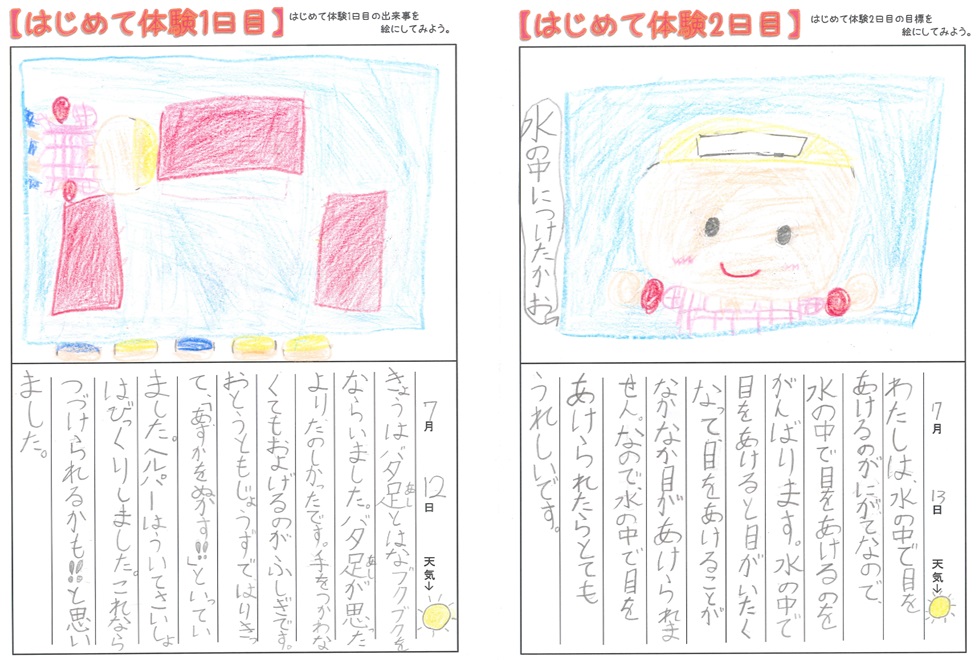 【はじめて体験1日目】
はじめて体験1日目の出来事を
絵にしてみよう。
7月 12日 天気→
きょうはバタ足とはなブクブクを
あし
ならいました。バタ足が思った
あし
よりたのしかったです。手をつかわな
くてもおよげるのがふしぎです。
おとうともじょうずではりきっ
て、「あすかをぬかす!!」といってい
ました。ヘルパーはういてさいしょ
はびっくりしました。これなら
つづけられるかも!!と思い
ました。
【はじめて体験2日目】
はじめて体験2日目の目標を
絵にしてみよう。
水の中につけたかお
7月 13日 天気→
わたしは、水の中で目を
あけるのがにがてなので、
水の中で目をあけるのを
がんばります。水の中で
目をあけると目がいたく
なって、目をあけることが
なかなか目があけられま
せん。なので、水の中で目を
あけられたらとても
うれしいです。